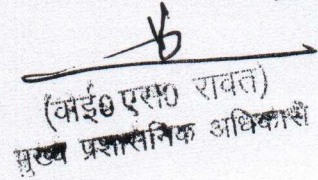 (वाई० एस० रावत)
मुख्य प्रशासनिक अधिकारी